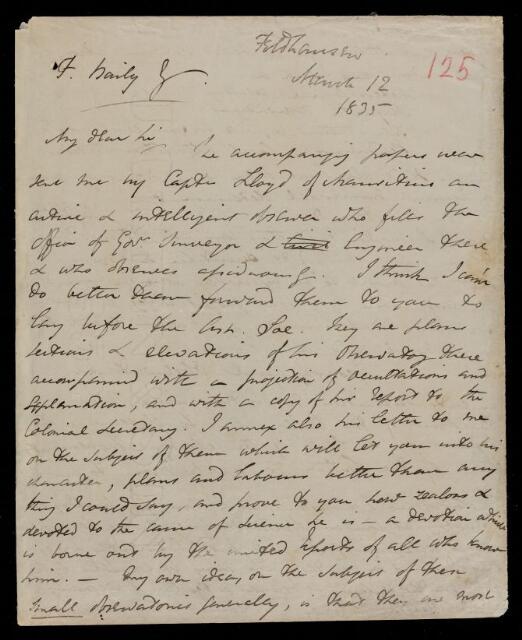 Feldhausen
March 12
1835
125
F. Baily Esq
My dear Sir
The accompanying papers were
sent me by Captn Lloyd of Mauritius an
active & intelligent observer who fills the
office of Govt Surveyor & Civil Engineer there
& who observes assiduously. I think I can't
do better than forward them to you to
lay before the Ast. Soc. They are plans
sections & elevations of his Observatory there
accompanied with a projection of occultations and
explanation, and with a copy of his report to the
Colonial Secretary. I annex also his letter to me
on the subject of them which will let you into his
character, plans and labours better than any
thing I could say, and prove to you how zealous &
devoted to the cause of science he is – a devotion which
is borne out by the united reports of all who know
him. – My own idea, on the subject of these
small observatories generally, is that they are most